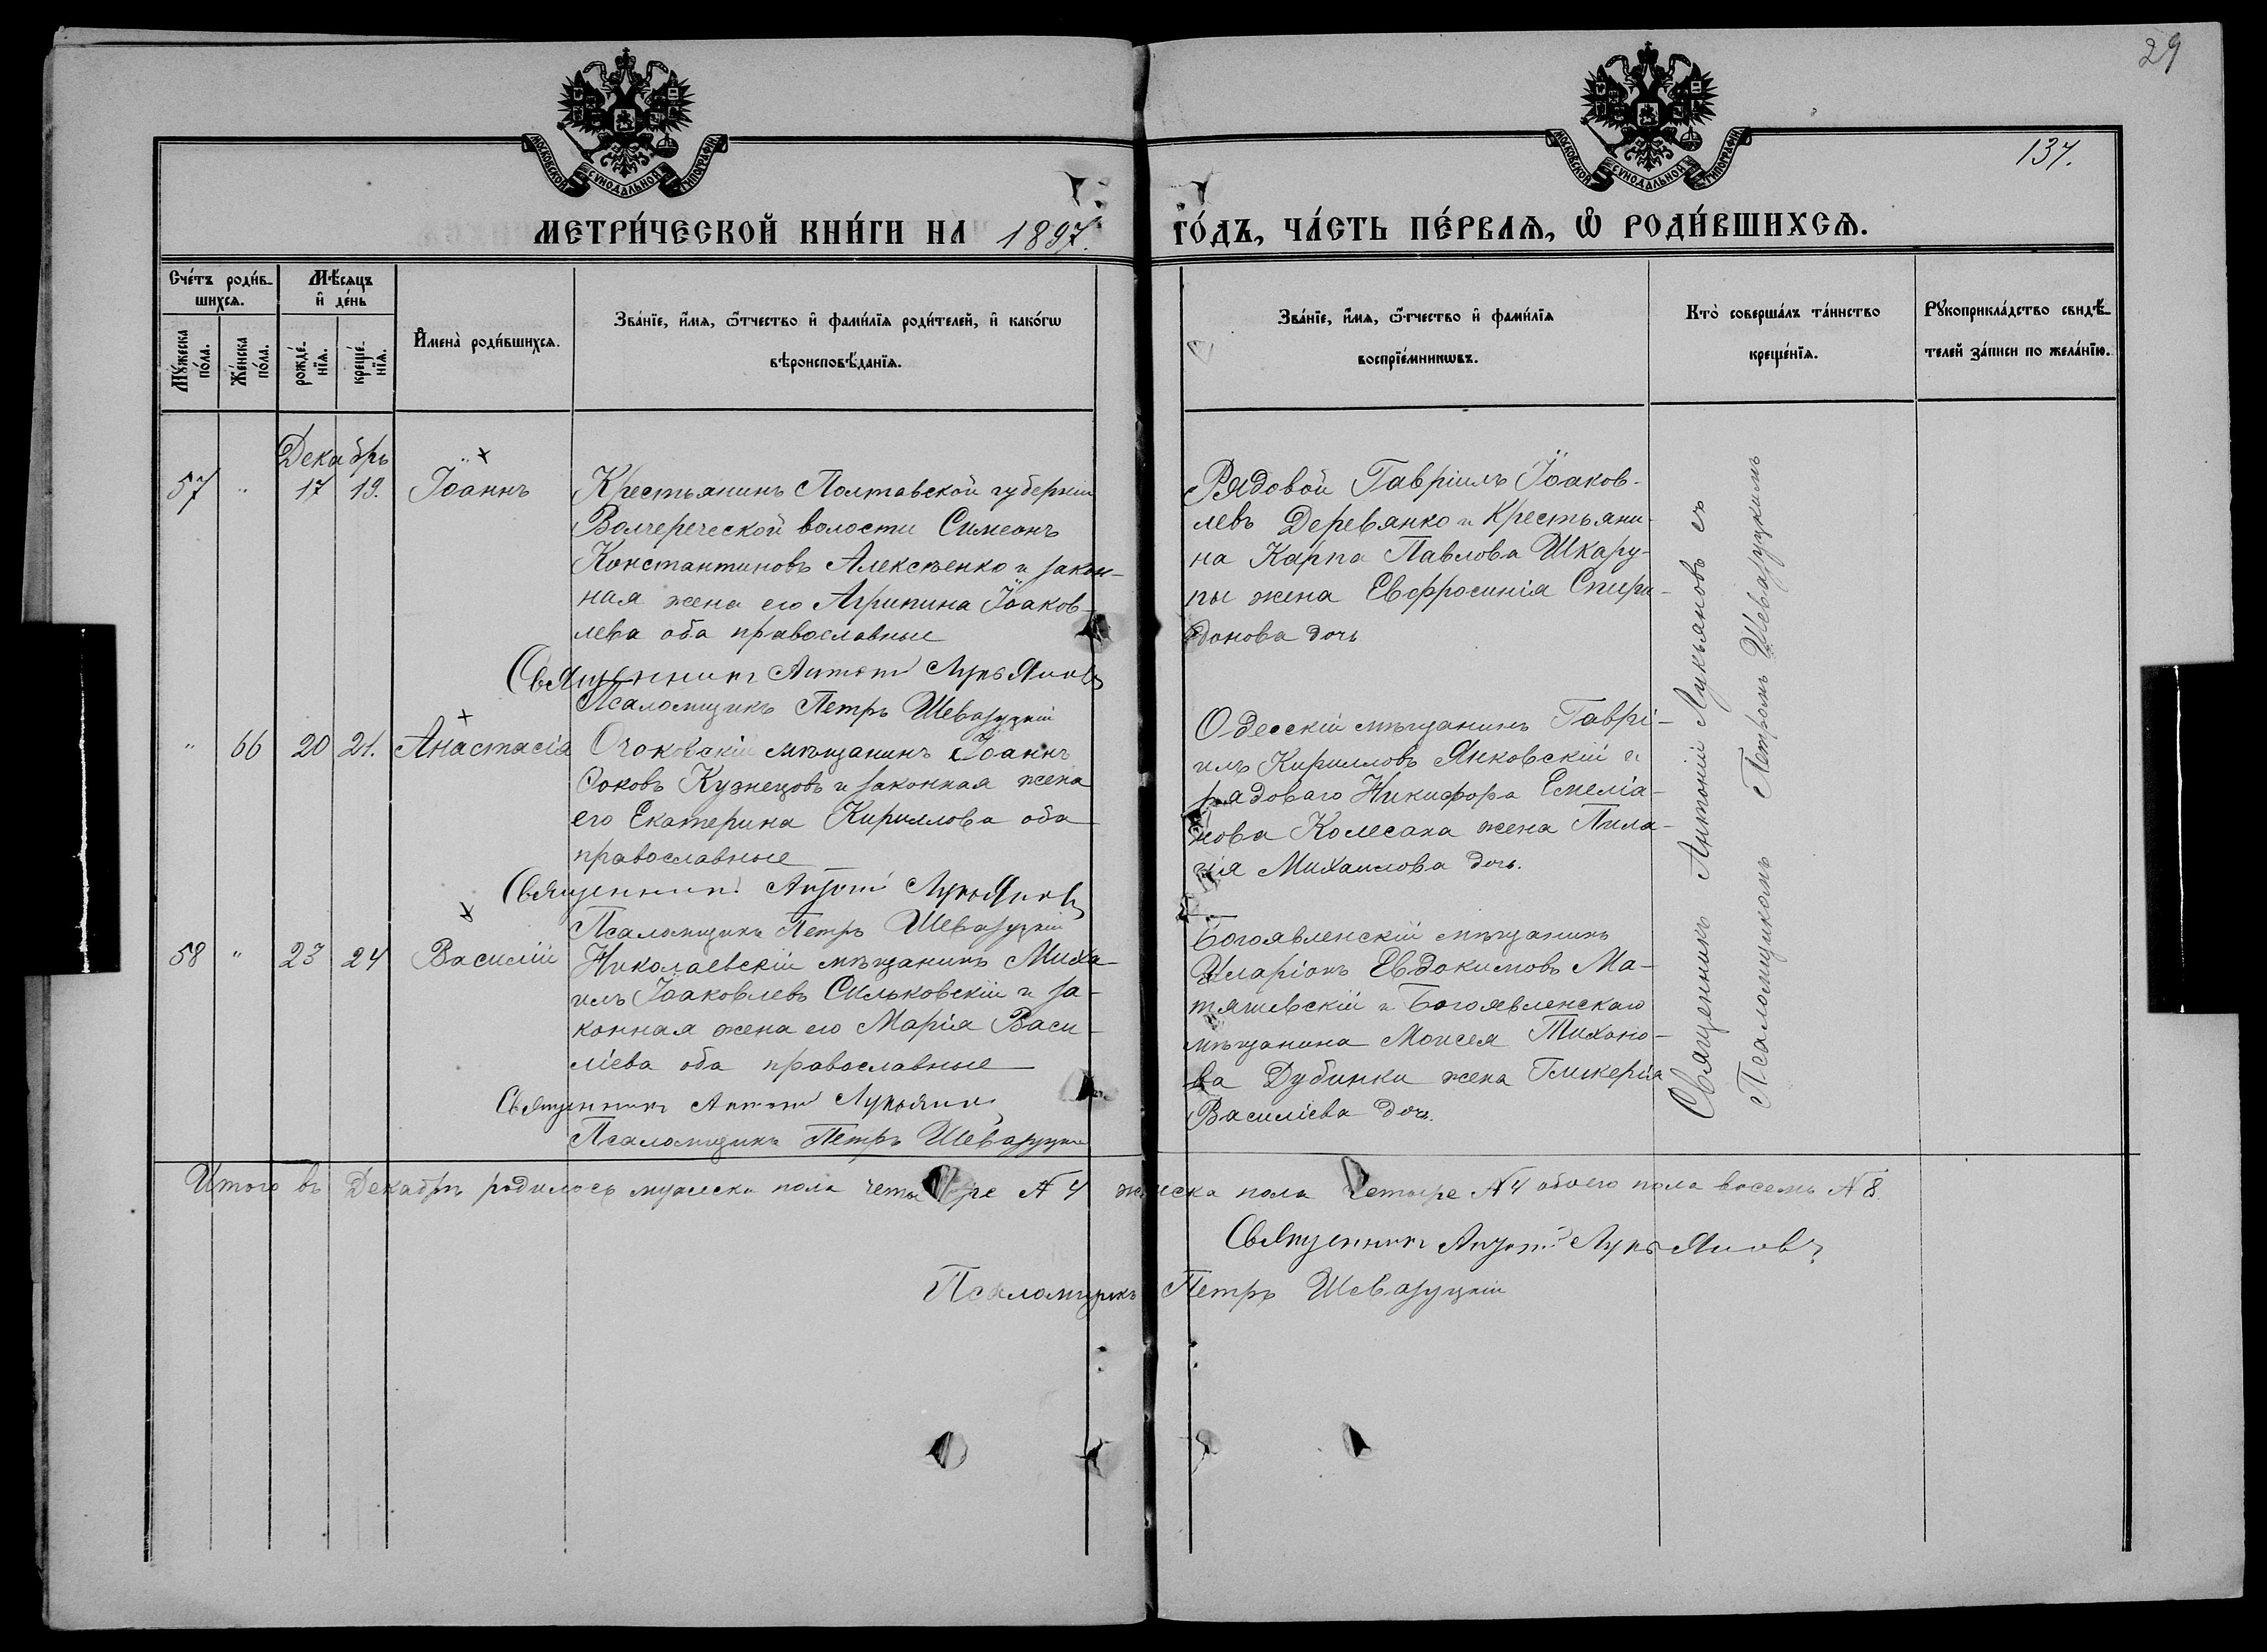 29
137.
МОСКОВСКОЙ СѴНОДАЛЬНОЙ ТИПОГРАФІИ
МОСКОВСКОЙ СѴНОДАЛЬНОЙ ТИПОГРАФІИ
МЕТРИ́ЧЕСКОЙ КНИ́ГИ НА 1897. ГО́ДЪ, ЧА́СТЬ ПЕ́РВАѦ, Ѡ҆ РОДИ́ВШИХСѦ.
Сче́тъ роди́в-
шихсѧ.
Мꙋ́жеска
по́ла.
Же́нска
по́ла.
Мѣ́сяцъ
и҆ де́нь
рожде́-
нїѧ.
креще́-
нїѧ.
И҆мена̀ роди́вшихсѧ.
Зва́нїе, и҆́мѧ, ѻ҆́тчество и҆ фами́лїѧ роди́телей, и҆ како́гѡ
вѣроисповѣ́данїѧ.
Зва́нїе, и҆́мѧ, ѻ҆́тчество и҆ фами́лїѧ
воспрїе́мникѡвъ.
Кто̀ соверша́лъ та́инство
креще́нїѧ.
Рꙋкоприкла́дство свидѣ́-
телей за́писи по жела́нїю.
Декабрь
57 " 17 19. Іоаннъ
Крестьянинъ Полтавской губерніи
Волчереческой волости Симеонъ
Константиновъ Алексѣенко и закон-
ная жена его Агрипина Іоаков-
лева оба православные
Священникъ Антоній Лукьяновъ
Псаломщикъ Петръ Шевазуцкій
Рядовой Гавріилъ Іоаков-
левъ Деревянко и Крестьяни-
на Карпа Павлова Шкару-
пы жена Евфросинія Спири-
донова дочь
" 66 20 21. Анастасія
Очаковскій мѣщанинъ Іоаннъ
Соковъ Кузнецовъ и законная жена
его Екатерина Кириллова оба
православные
Священникъ Антоній Лукьяновъ
Псаломщикъ Петръ Шевазуцкій
Одесскій мѣщанинъ Гаврі-
илъ Кирилловъ Янковскій и
рядоваго Никифора Емеліа-
нова Колесака жена Пила-
гія Михаилова дочь.
58 " 23 24 Василій
Николаевскій мѣщанинъ Миха-
илъ Іоаковлевъ Сильковскій и за-
конная жена его Марія Васи-
ліева оба православные
Священникъ Антоній Лукьяновъ
Псаломщикъ Петръ Шевазуцкій
Богоявленскій мѣщанинъ
Иларіонъ Евдокимовъ Ма-
тяшевскій и Богоявленскаго
мѣщанина Моисея Тихоно-
ва Дубинки жена Гликерія
Василіева дочь.
Священникъ Антоній Лукьяновъ съ
Псаломщикомъ Петромъ Шевазуцкимъ
Итого въ Декабрѣ родилось мужеска пола четыре № 4 женска пола четыре № 4 обоего пола восемь № 8.
Священникъ Антоній Лукьяновъ
Псаломщикъ Петръ Шевазуцкій